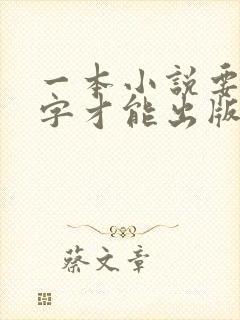 一本小説要
字才能出版
蔡文章